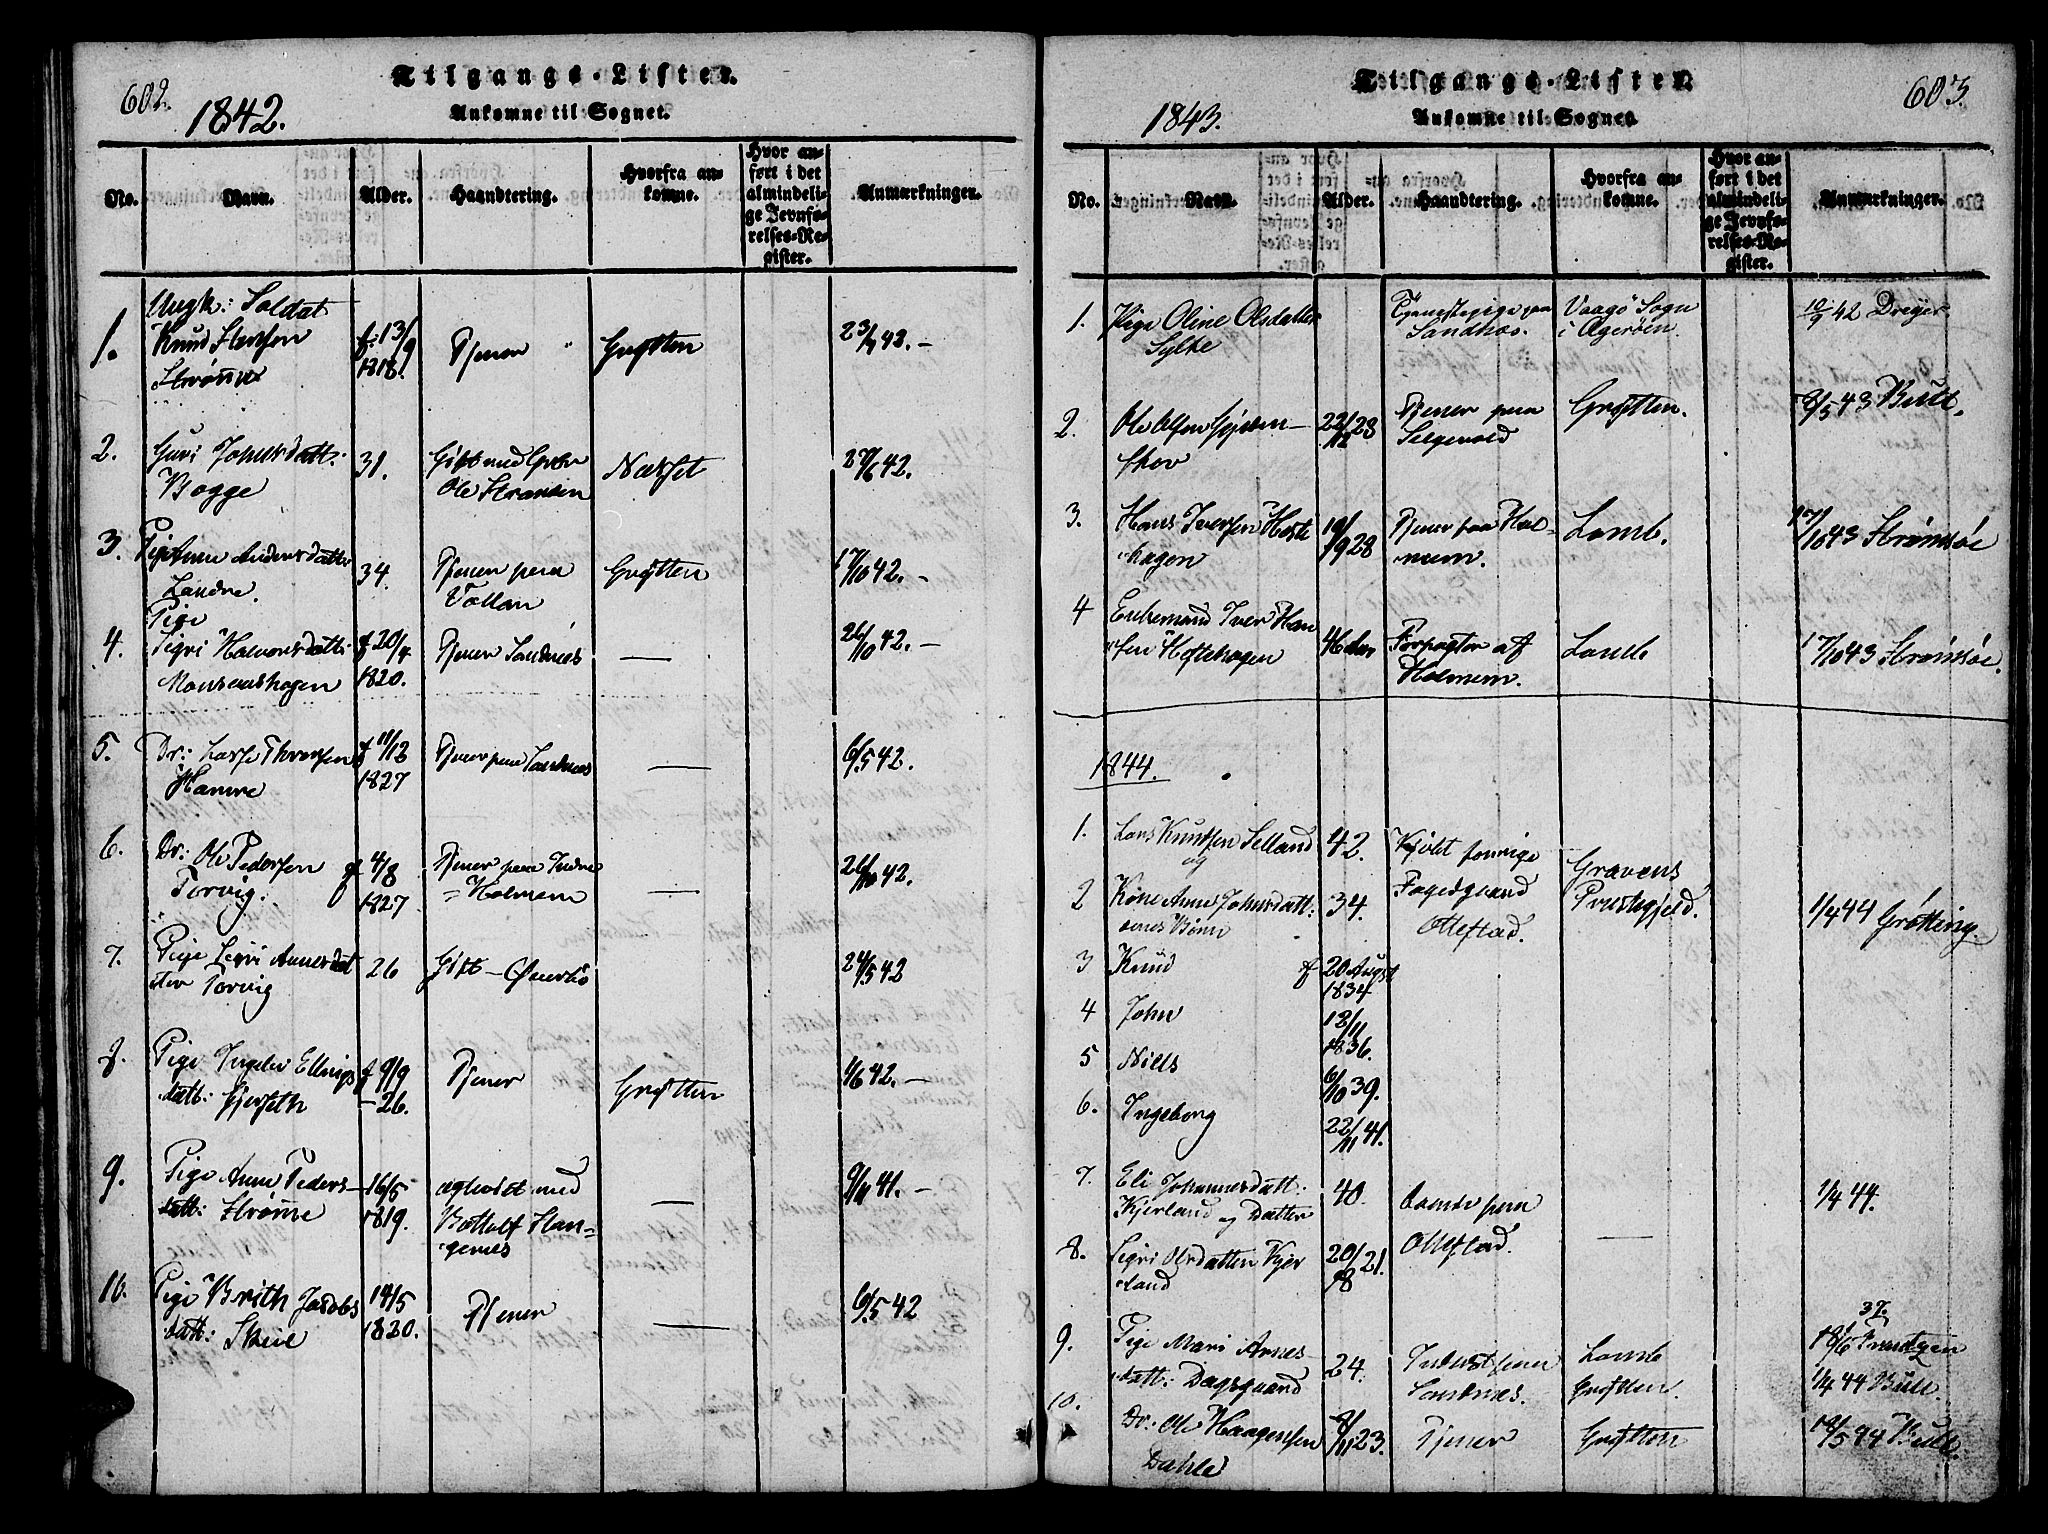 602.
Tilgangs-Lister.
1842.
Ankomne til Sognet.
No.
Navn.
Alder.
Haandtering.
Hvorfra an-
komne.
Hvor an-
ført i det
almindeli-
ge Jevnfø-
relses-Re-
gister.
Anmærkninger.
1.
Ungk: Soldat
Knud
Strømme
f. 13/9
1818.
Tjener
Grytten
42.
2.
Guri Johnsdatt:
Bogge
31.
Gift med
Ole Stranden
Næsset
42.
3.
Pige Anne Andersdatter
Landre.
34.
Tjener paa
Vollan
Grytten
17/10 42.
4.
Pige
Sigri Halvorsdatt:
Monsaashagen
f 20/4
1820.
Tjener Sandnes
26/10 42.
5.
Dr:
Hamre
f 11/12
1827
Tjener paa Sandnes
6/5 42.
6.
Dr: Ole Pedersen
Torvig.
f 4/8
1827.
Tjener paa Indre
Holmem
26/10 42.
7.
Pige Sigri
Torvig
26
Gift
24/5 42
8.
Pige
datt:
f 9/9
26.
Tjener
Grytten
42.
9.
Pige Anne Peders
datt: Strømme
16/5
1819.
ægteviet med
9/11 41.
10.
Pige Brith Jacobs
datt: Skeie
14/5
1820.
Tjener
6/5 42
Tilgangs-Lister.
603
1843.
Ankomne til Sognet.
No.
Navn.
Alder.
Haandtering.
Hvorfra an-
komne.
Hvor an-
ført i det
almindeli-
ge Jevnfø-
relses-Re-
gister.
Anmærkninger.
1.
Pige Oline Olsdatter
Sylte
Tjenestepige paa
Vaagø Sogn
i Agerøen.
10/9 42 Dreyer
2.
Ole Olsen
22/12 23
Tjener paa
Selgevold
Grytten.
43 Bull.
3.
Hans Iversen Hofte
hagen
19/9 28
Tjener paa Hol-
mem.
Lomb.
17/10 43 Strømsøe
4
Enkemand Iver Han
sen Hoftehagen
46 Aar
Forpagter af
Holmem.
Lomb
17/10 43 Strømsøe.
1844.
1.
Lars Knutsen Selland
og
42.
Kjøbt forrige
Fogedgaard
Ottestad.
Gravens
Præstegjeld.
2
Kone Anne Johnsdatt:
34.
1/4 44 Grøtting.
3
Knud
f 20 August
1834
4
John
18/11
1836.
5
Niels
6/10 39.
6.
Ingeborg
22/11 41.
7.
Eli Johannesdatt.
Kjerland og Datter
40.
paa
Ottestad.
1/4 44.
8.
Sigri Olsdatter Kjer
land
20/8 21.
9.
Pige Mari Arnes
datt: Dagsgaard
24.
Inderst paa
Sandnes.
Lomb
Grytten.
37.
18/6
1/4 44 Bull.
10.
Dr: Ole Haagensen
Dahle
8/11 23.
Tjener
Grytten
44 Bull.